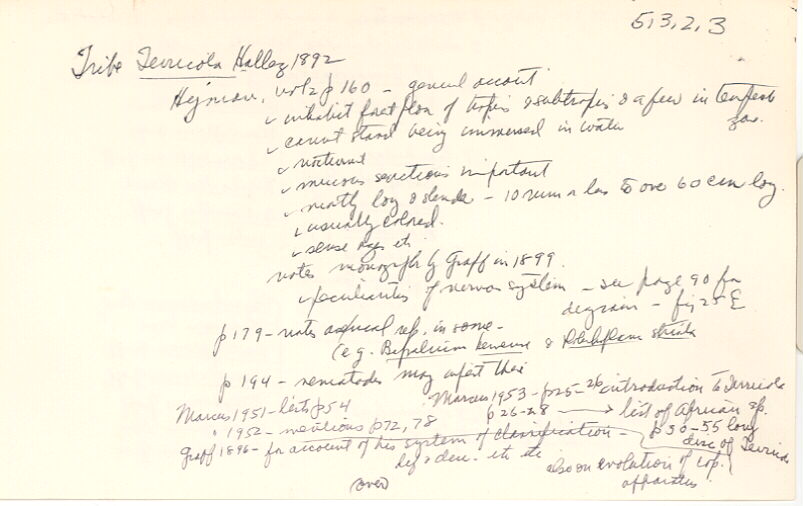 513.2.3
Tribe Terricola Hallez 1892
Hyman, vol 2 p 160 - general account
✓ inhabit forest floor of tropics & subtropics & a few in temperate zone.
✓ cannot stand being immersed in water
✓ nocturnal
✓ mucous secretions important
✓ mostly long & slender - 10 mm or less to over 60 cm long.
✓ usually colored.
✓ sense organs etc
notes monograph by Graff in 1899.
✓ peculiarities of nervous system - see page 90 for
diagram - fig 25 E
p 179 - notes asexual rep. in some -
(e.g. Bipalium kewense &
p 194 - nematodes may infest their
Marcus 1953 - p25-26 introduction to Terricola
Marcus 1951 - lists p54
p 26-28 → list of African sp.
" 1952 - mentions p72, 78
p 30-55 long
disc of Terricola
Graff 1896 - for account of his system of classification -
def & desc. etc etc
also on evolution of cop.
apparatus
(over)